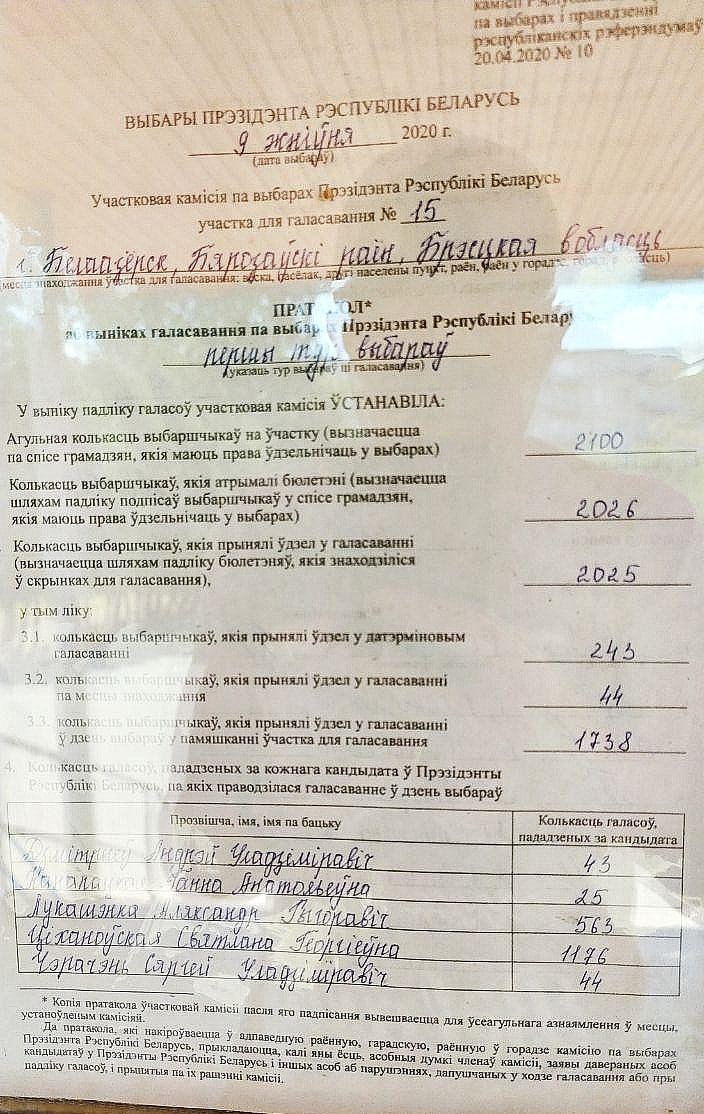 па выбарах і правядзенні
рэспубліканскіх рэферэндумаў
20.04.2020 № 10
ВЫБАРЫ ПРЭЗІДЭНТА РЭСПУБЛІКІ БЕЛАРУСЬ
9 жніўня 2020 г.
(дата выбараў)
Участковая камісія па выбарах Прэзідэнта Рэспублікі Беларусь
участка для галасавання № 15
г. Белаазёрск, Бярозаўскі раён, Брэсцкая вобласць
(месца знаходжання ўчастка для галасавання: вёска, пасёлак, другі населены пункт, раён, раён у горадзе, горад, вобласць)
ПРАТАКОЛ*
аб выніках галасавання па выбарах Прэзідэнта Рэспублікі Беларусь
першы тур выбараў
(указаць тур выбараў ці галасавання)
У выніку падліку галасоў участковая камісія ЎСТАНАВІЛА:
Агульная колькасць выбаршчыкаў на ўчастку (вызначаецца
па спісе грамадзян, якія маюць права ўдзельнічаць у выбарах) 2100
Колькасць выбаршчыкаў, якія атрымалі бюлетэні (вызначаецца
шляхам падліку подпісаў выбаршчыкаў у спісе грамадзян,
якія маюць права ўдзельнічаць у выбарах) 2026
Колькасць выбаршчыкаў, якія прынялі ўдзел у галасаванні
(вызначаецца шляхам падліку бюлетэняў, якія знаходзіліся
ў скрынках для галасавання), 2025
у тым ліку:
3.1. колькасць выбаршчыкаў, якія прынялі ўдзел у датэрміновым
галасаванні 243
3.2. колькасць выбаршчыкаў, якія прынялі ўдзел у галасаванні
па месцы знаходжання 44
3.3. колькасць выбаршчыкаў, якія прынялі ўдзел у галасаванні
ў дзень выбараў у памяшканні ўчастка для галасавання 1738
4. Колькасць галасоў, пададзеных за кожнага кандыдата ў Прэзідэнты
Рэспублікі Беларусь, па якіх праводзілася галасаванне ў дзень выбараў
Прозвішча, імя, імя па бацьку Колькасць галасоў,
пададзеных за кандыдата
Дзмітрыеў Андрэй Уладзіміравіч 43
Канапацкая Ганна Анатольеўна 25
Лукашэнка Аляксандр Рыгоравіч 563
Ціханоўская Святлана Георгіеўна 1176
Чэрачэнь Сяргей Уладзіміравіч 44
* Копія пратакола ўчастковай камісіі пасля яго падпісання вывешваецца для ўсеагульнага азнаямлення ў месцы,
устаноўленым камісіяй.
Да пратакола, які накіроўваецца ў адпаведную раённую, гарадскую, раённую ў горадзе камісію па выбарах
Прэзідэнта Рэспублікі Беларусь, прыкладаюцца, калі яны ёсць, асобныя думкі членаў камісіі, заявы давераных асоб
кандыдатаў у Прэзідэнты Рэспублікі Беларусь і іншых асоб аб парушэннях, дапушчаных у ходзе галасавання або пры
падліку галасоў, і прынятыя па іх рашэнні камісіі.